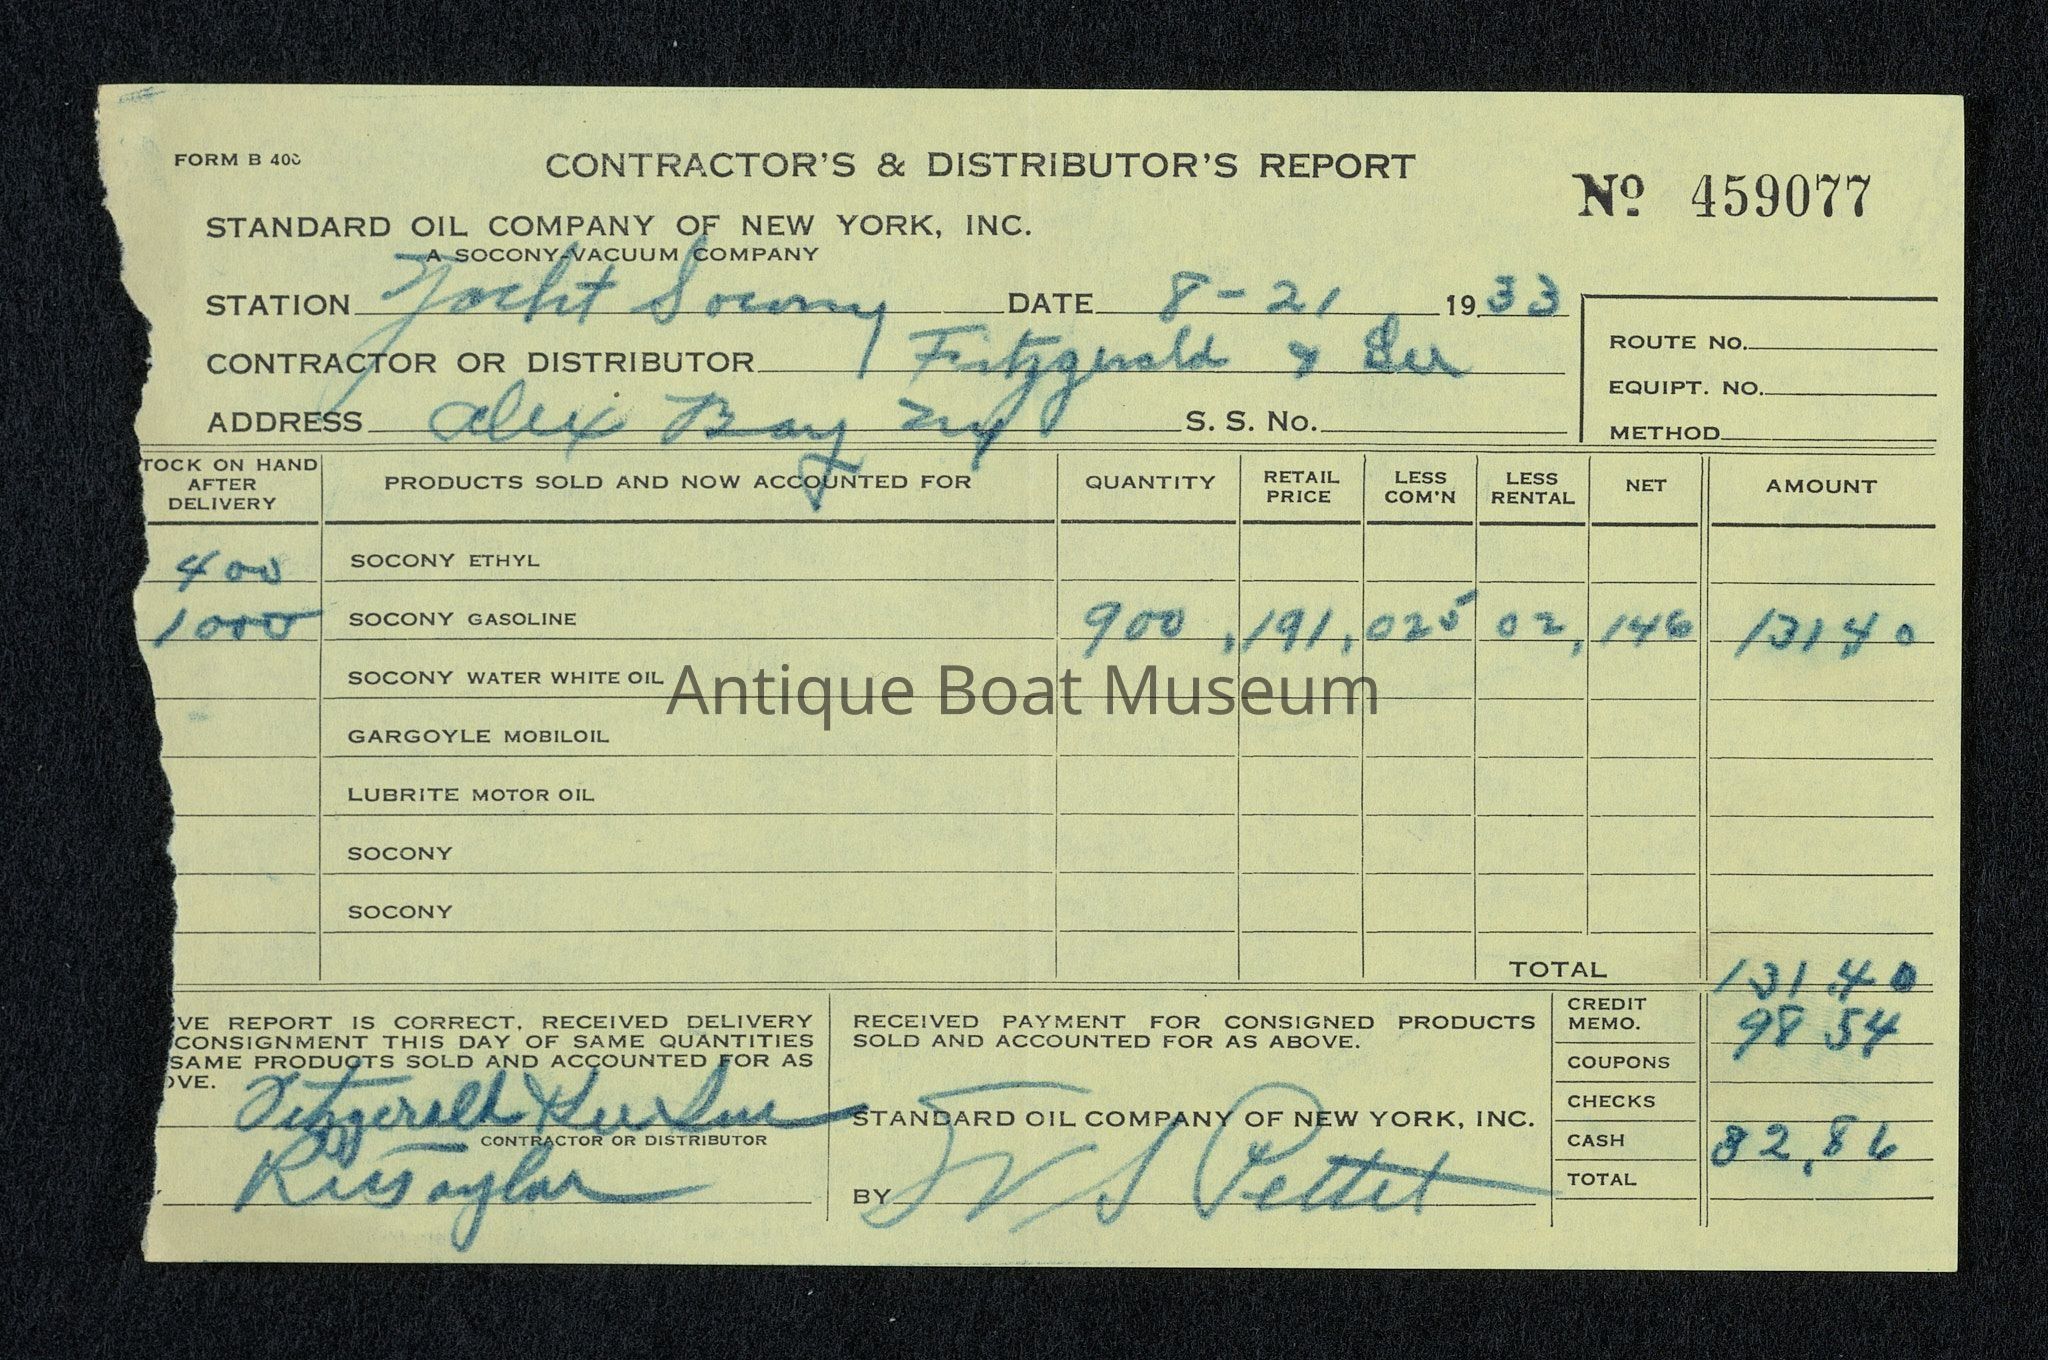 FORM B 400
CONTRACTOR'S & DISTRIBUTOR'S REPORT
No 459077
STANDARD OIL COMPANY OF NEW YORK, INC.
A SOCONY-VACUUM COMPANY
STATION Yacht Socony DATE 8-21 1933
ROUTE NO.
CONTRACTOR OR DISTRIBUTOR Fitzgerald & Lee
EQUIPT. NO.
ADDRESS Alex Bay NY S. S. No.
METHOD
TOCK ON HAND AFTER DELIVERY PRODUCTS SOLD AND NOW ACCOUNTED FOR QUANTITY RETAIL PRICE LESS COM'N LESS RENTAL NET AMOUNT
400 SOCONY ETHYL
1000 SOCONY GASOLINE 900 .191 .025 02 .146 131 40
SOCONY WATER WHITE OIL
Antique Boat Museum
GARGOYLE MOBILOIL
LUBRITE MOTOR OIL
SOCONY
SOCONY
TOTAL 131.40
VE REPORT IS CORRECT, RECEIVED DELIVERY
CONSIGNMENT THIS DAY OF SAME QUANTITIES
SAME PRODUCTS SOLD AND ACCOUNTED FOR AS
OVE.
Fitzgerald & Lee
CONTRACTOR OR DISTRIBUTOR
Taylor
RECEIVED PAYMENT FOR CONSIGNED PRODUCTS
SOLD AND ACCOUNTED FOR AS ABOVE.
STANDARD OIL COMPANY OF NEW YORK, INC.
BY S Pettit
CREDIT MEMO. 98 54
COUPONS
CHECKS
CASH 32.86
TOTAL